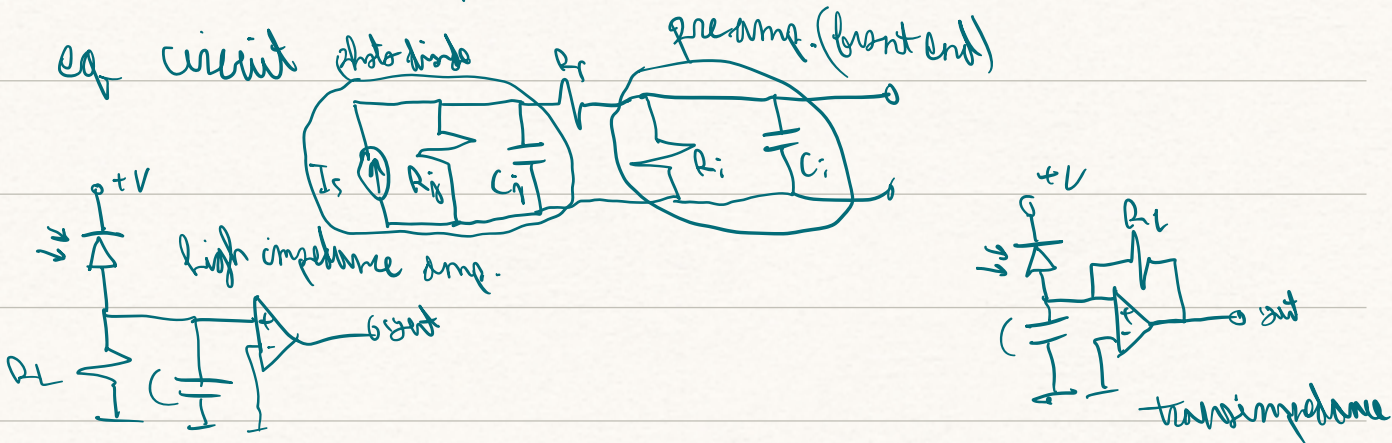 eq circuit photodiode Rs preamp. (front end)
Is Rj Cj Ri Ci
+V
high impedance amp.
RL C + - out
+V
RL
C + - out
transimpedance